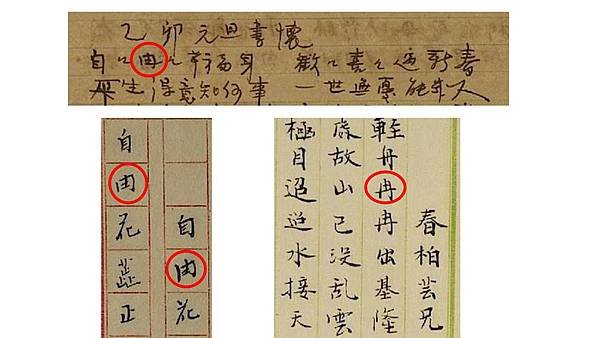 乙卯元旦書懷
自〻由〻幸福身 歡〻喜〻過新春
平生得意知何事 一世無憂能人
自由花
自由花蕋正
春柏芸兄
軽舟冉冉出基隆
處故山已没乱雲
極目迢迢水接天